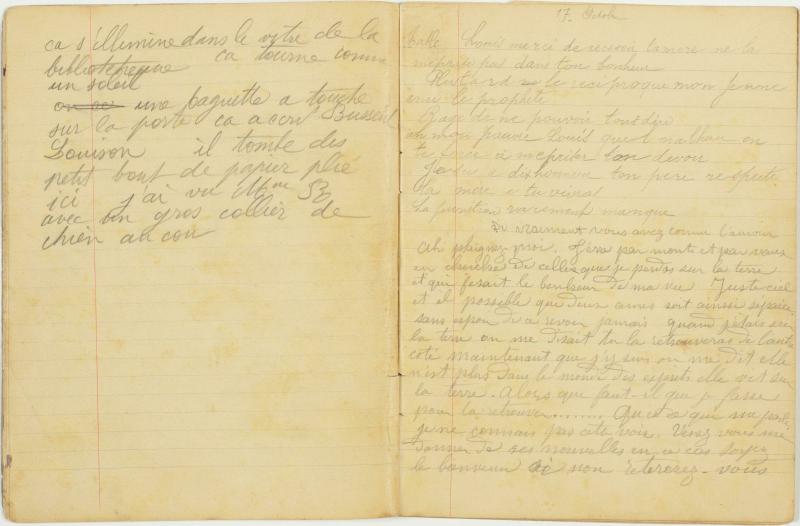 ça s'illumine dans le vitre de la
bibliotequue ça tourne comme
un soleil
une baguette a touché
sur la porte ça a
Louison il tombe des
petit bout de papier plié
ici j'ai vu Mme
avec un gros collier de
chien au cou
17. Octob
Louis merci de recevoir ta mere ne la
meprise pas dans ton bonheur
Plus tard le reciproque mon jeune
ami le prophête
J'age de ne pouvoir tout dire
mon pauvre Louis quel malheur on
te force à mepriser ton devoir
ton pere respecte
ta mère e tu vivras
La punition rarement manque
Si vraiment vous avez connu l'amour
Ah plaignez-moi. J'erre par monts et par vaux
en cherche de celle que je perdis sur la terre
et qui fesait le bonheur de ma vie Juste ciel
et il possible que deux ames soit ainsi séparées
sans espoir de se revoir jamais quand j'étais sur
la terre on me disait tu la retrouveras de l'autre
coté maintenant que j'y suis on me dit elle
n'est plus dans le monde des esprits elle vit sur
la terre. Alors que faut-il que je fasse
pour la retrouver........ Qu'est ce que me parle
je ne connais pas cette voix. Venez vous me
donner de ses nouvelles en ce cas soyez
le bienvenu si non retirez-vous